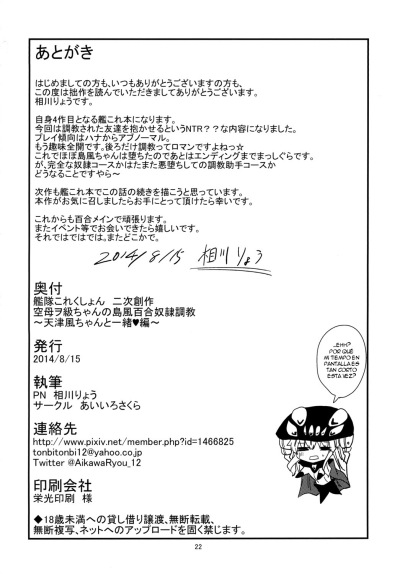 あとがき
はじめましての方も、いつもありがとうございますの方も、
この度は拙作を読んでいただきましてありがとうございます。
相川りょうです。
自身4作目となる艦これ本になります。
今回は調教された友達を抱かせるというNTR？？な内容になりました。
プレイ傾向はハナからアブノーマル。
もう趣味全開です。後ろだけ調教ってロマンですよねっ☆
これでほぼ島風ちゃんは堕ちたのであとはエンディングまでまっしぐらです。
が、完全な奴隷コースかはたまた悪堕ちしての調教助手コースか
どうなることですやら～
次作も艦これ本でこの話の続きを描こうと思っています。
本作がお気に召しましたらお手にとって頂けたら幸いです。
これからも百合メインで頑張ります。
またイベント等でお会いできたら嬉しいです。
それではではでは、またどこかで。
2014/8/15 相川りょう
奥付
艦隊これくしょん 二次創作
空母ヲ級ちゃんの島風百合奴隷調教
～天津風ちゃんと一緒♥編～
発行
2014/8/15
執筆
PN 相川りょう
サークル あいいろさくら
連絡先
http://www.pixiv.net/member.php?id=1466825
tonbitonbi12@yahoo.co.jp
Twitter @AikawaRyou_12
印刷会社
栄光印刷 様
◆18歳未満への貸し借り譲渡、無断転載、
無断複写、ネットへのアップロードを固く禁じます。
...EHH?
POR QUÉ
MI TIEMPO EN
PANTALLA ES
TAN CORTO
ESTA VEZ?
22